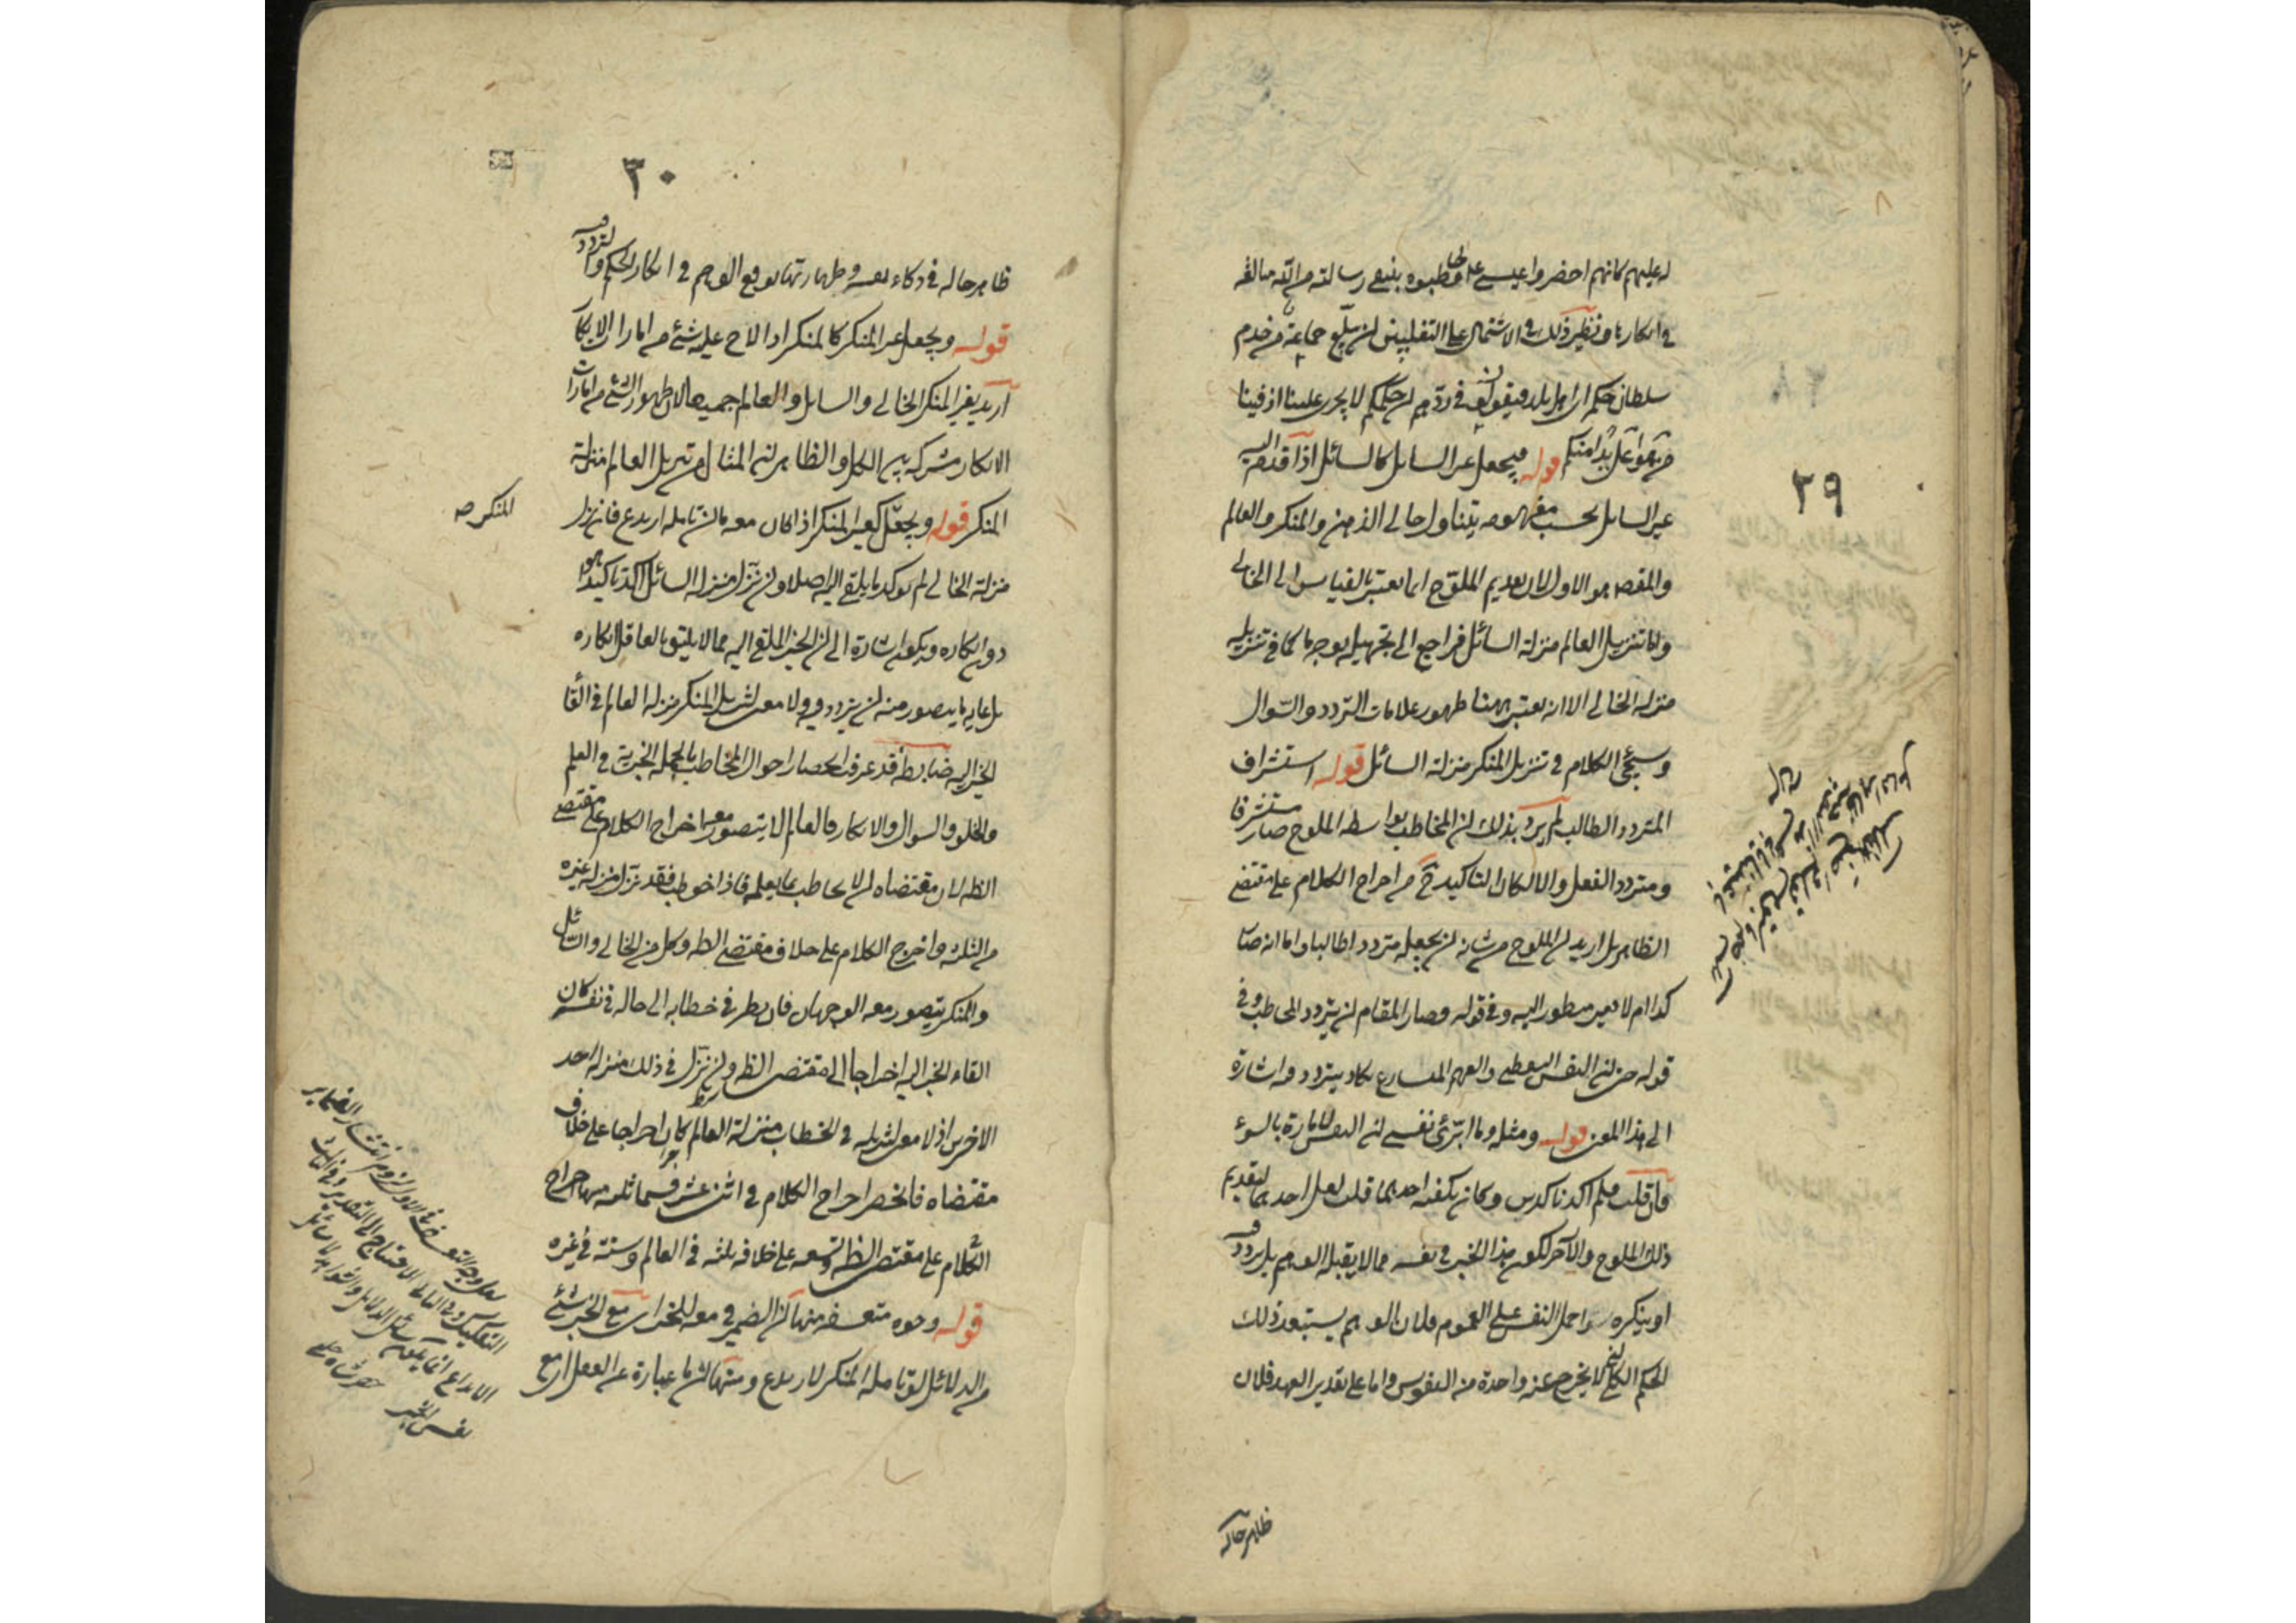 ٢٩
له عليهم كانهم احضروا عيسى وخاطبوه بنفى رسالته من الله مبالغة
في انكارها ونظير ذلك في الاشتمال على التغليبين ان يبلغ جماعة من خدم
سلطان حكم الى اهل بلد فيقولون في ردهم ان حكمكم لا يجرى علينا اذ فينا
من هو اعلى يدا منكم قوله فيجعل غير السائل كالسائل اذا قدم اليه
غير السائل بحسب مفهومه يتناول خالى الذهن والمنكر والعالم
والمقصود هو الاول لان تقديم الملوح انما يعتبر بالقياس الى الخالى
واما تنزيل العالم منزلة السائل فراجع الى تجهيله بوجه ما كما في تنزيله
منزلة الخالى الا انه يعتبر ههنا ظهور علامات التردد والسؤال
وسيجئ الكلام في تنزيل المنكر منزلة السائل قوله استشراف
المتردد الطالب لم يرد بذلك ان المخاطب بواسطة الملوح صار مستشرفا
ومترددا بالفعل والا لكان التاكيد ح من اخراج الكلام على مقتضى
الظاهر بل اريد ان الملوح من شانه ان يجعله مترددا طالبا واما انه صار
كذا ام لا فغير منظور اليه وفي قوله وصار المقام ان يتردد المخاطب وفي
قوله حتى ان النفس اليقظى والفهم المتسارع يكاد يتردد فيه اشارة
الى هذا المعنى قوله ومثله وما ابرئ نفسى ان النفس لامارة بالسوء
فان قلت فلم اكد تاكيدين وكان يكفيه احدهما قلت لعل احدهما لتقديم
ذلك الملوح والآخر لكون هذا الخبر في نفسه مما لا يقبله الوهم بل يتردد فيه
او ينكره سواء حمل النفس على العموم فلان الوهم يستبعد ذلك
الحكم الكلى لا يخرج عنه واحدة من النفوس واما على تقدير العهد فلان
ظاهر حاله
٣٠
ظاهر حاله في ذكاء نفسه وطهارتها يوقع الوهم في انكار الحكم والتردد فيه
قوله ويجعل غير المنكر كالمنكر اذا لاح عليه شئ من امارات الانكار
اريد بغير المنكر الخالى والسائل والعالم جميعا لان ظهور شئ من امارات
الانكار مشتركة بين الكل والظاهر ان المثال من تنزيل العالم منزلة
المنكر قوله ويجعل المنكر كغير المنكر اذا كان معه ما ان تامله ارتدع فان نزل
المنكر صح
منزلة الخالى لم يؤكد ما يلقى اليه اصلا وان نزل منزلة السائل اكد تاكيدا هو
دون انكاره ويكون اشارة الى ان الخبر الملقى اليه مما لا يليق بالعاقل انكاره
بل غاية ما يتصور منه ان يتردد فيه ولا معنى لتنزيل المنكر منزلة العالم في القاء
الخبر اليه ضابطة قد عرفت انحصار احوال المخاطب بالجملة الخبرية في العلم
والخلو والسؤال والانكار فالعالم لا يتصور معه اخراج الكلام على مقتضى
الظ لان مقتضاه ان لا يخاطب بما يعلمه فاذا خوطب فقد نزل منزلة غيره
من الثلثة واخرج الكلام على خلاف مقتضى الظ وكل من الخالى والسائل
والمنكر يتصور معه الوجهان فان نظر في خطابه الى حاله في نفسه كان
القاء الخبر اليه اخراجا الى مقتضى الظ وان نزل في ذلك منزلة احد
الاخرين اذ لا معنى لتنزيله في الخطاب منزلة العالم كان اخراجا على خلاف
مقتضاه فانحصر اخراج الكلام في اثنى عشر قسما ثلثة منها اخراج
الكلام على مقتضى الظ وتسعة على خلافه ثلثة في العالم وستة في غيره
قوله وجوه متعسفة منها ان الضمير في معه للخبر اى مع الخبر شئ
من الدلائل لو تامله المنكر لارتدع ومنها ان ما عبارة عن العقل اى مع